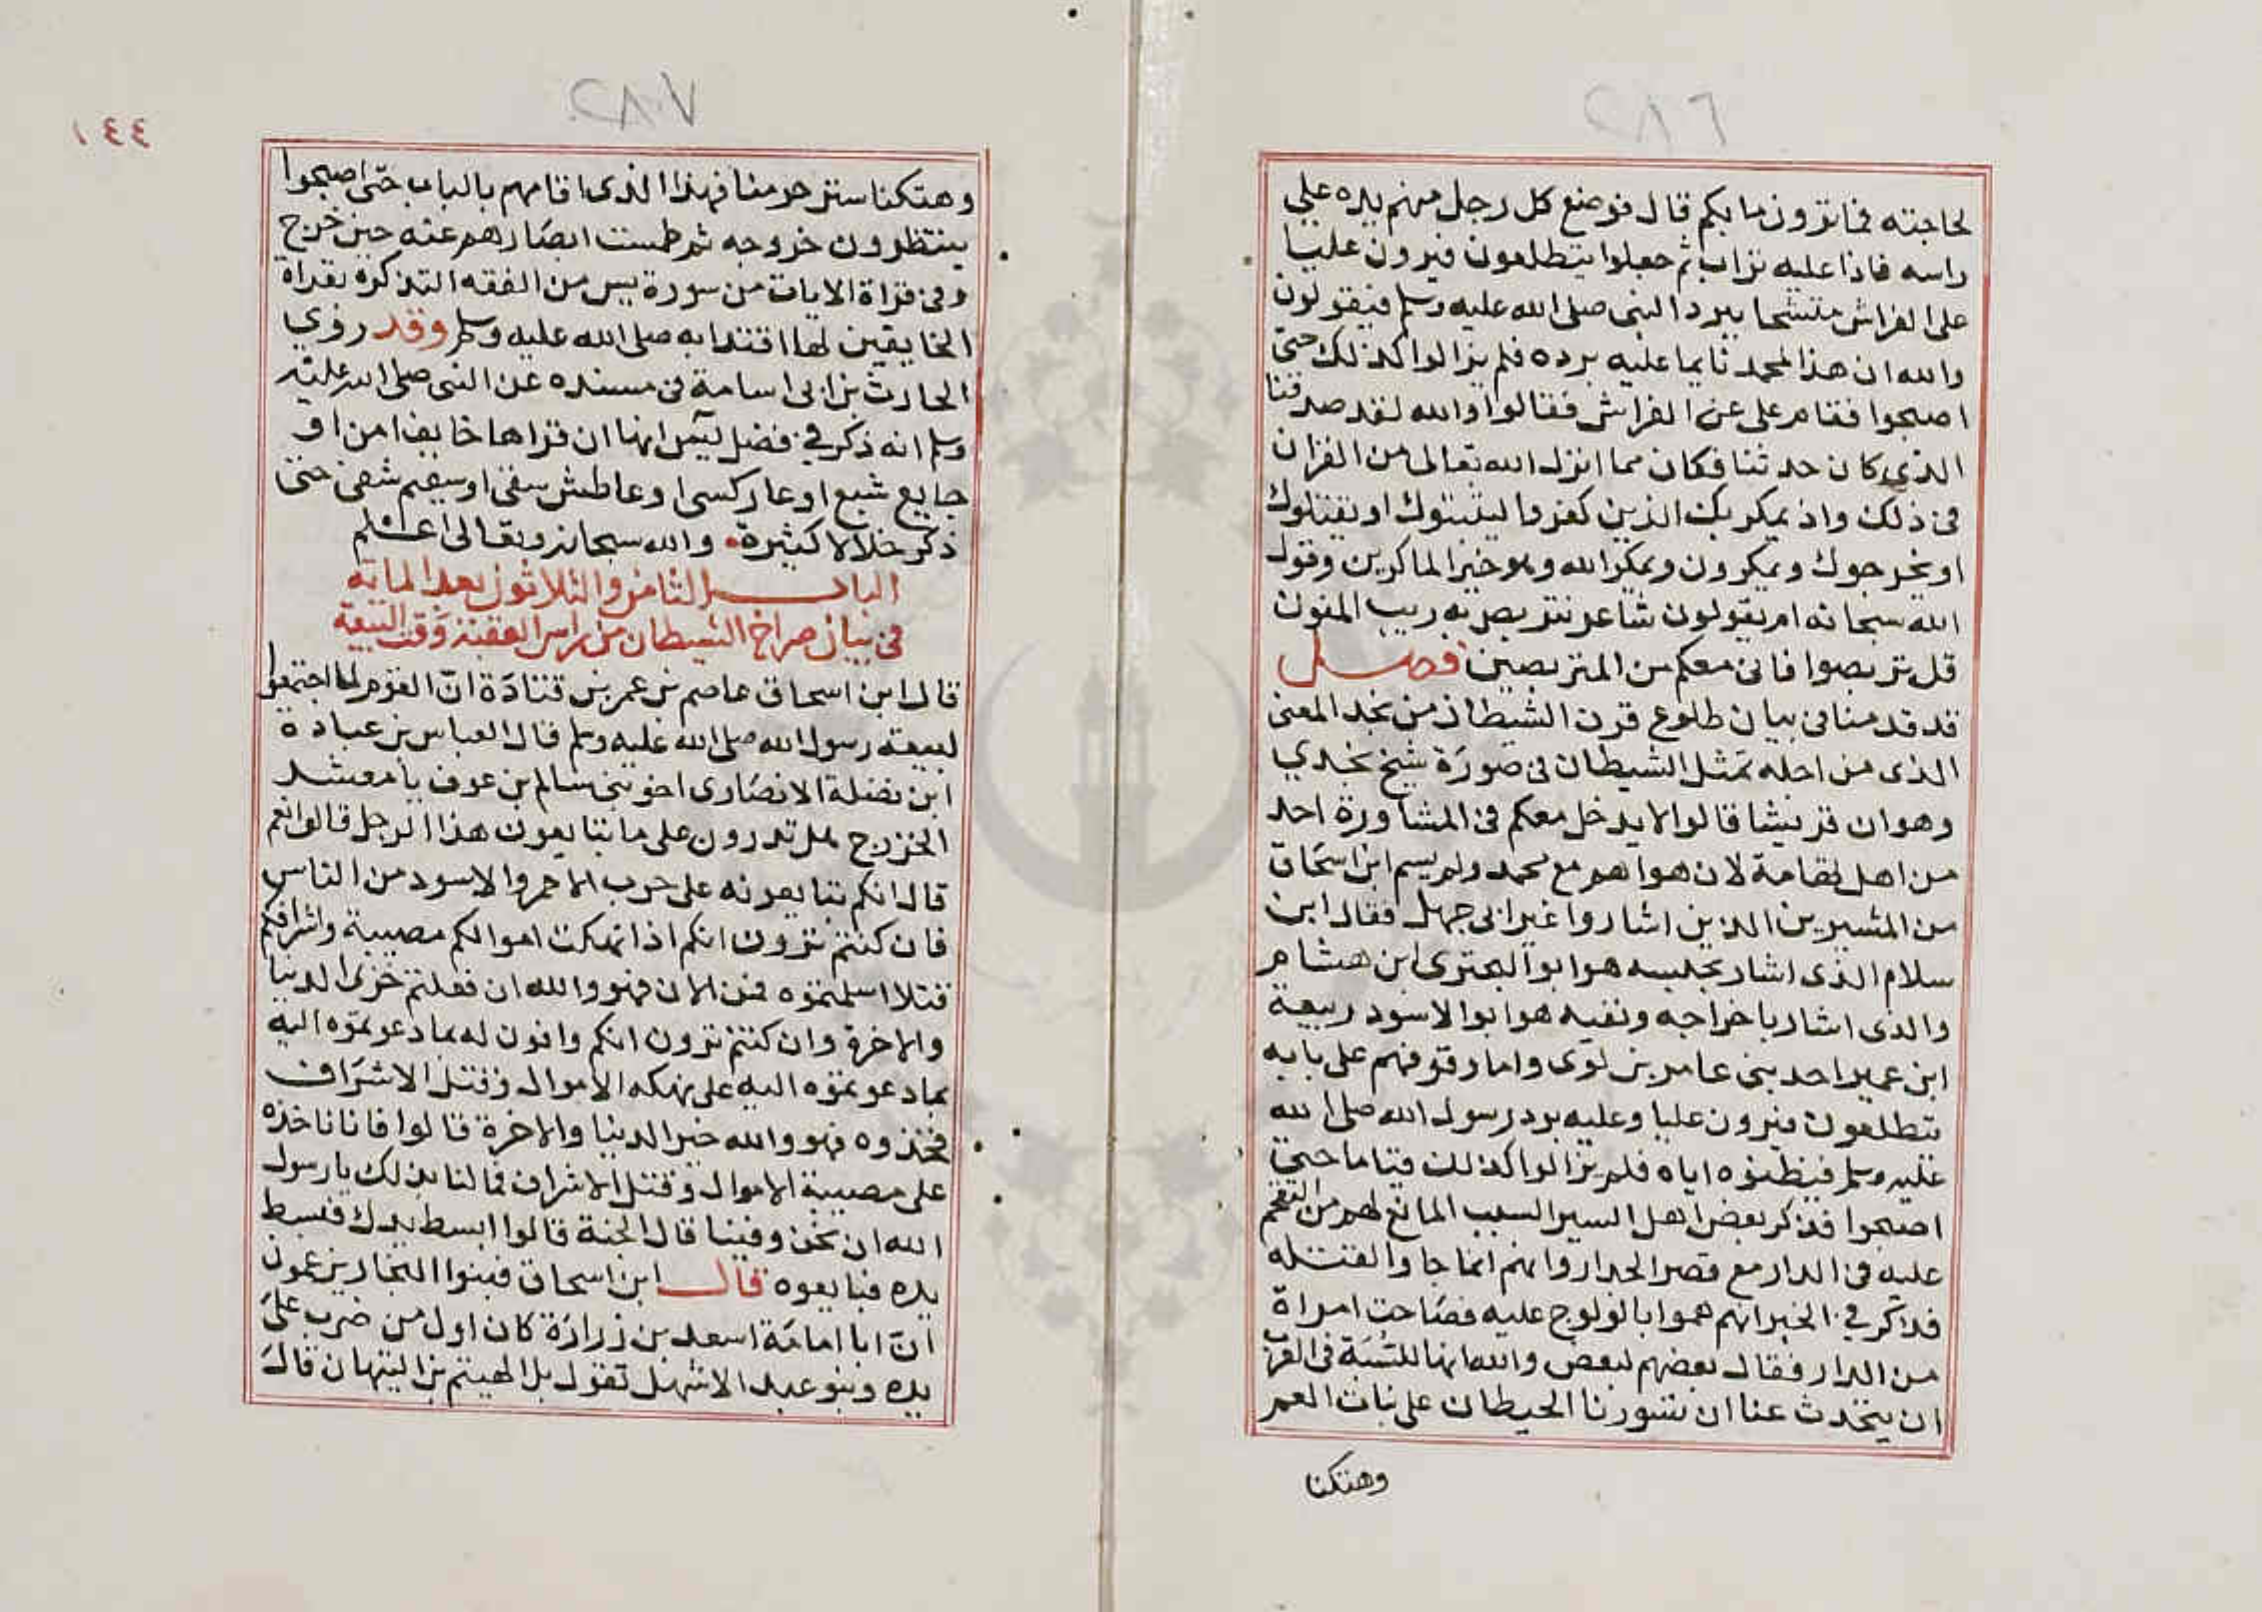 ٢٨٦
لحاجته فما ترون ما بكم قال فوضع كل رجل منهم يده على
راسه فاذا عليه تراب ثم جعلوا يتطلعون فيرون عليا
على الفراش متسشحا ببرد النبى صلى الله عليه وسلم فيقولون
والله ان هذا لمحمد نايما عليه برده فلم يزالوا كذلك حتى
اصبحوا فقام على عن الفراش فقالوا والله لقد صدقنا
الذي كان حدثنا فكان مما انزل الله تعالى من القران
فى ذلك واذ يمكر بك الذين كفروا ليثبتوك او يقتلوك
او يخرجوك ويمكرون ويمكر الله والله خير الماكرين وقول
الله سبحانه ام يقولون شاعر نتربص به ريب المنون
قل تربصوا فانى معكم من المتربصين فصل
قد قدمنا فى بيان طلوع قرن الشيطان من نجد المعنى
الذى من اجله تمثل الشيطان فى صورة شيخ نجدي
وهو ان قريشا قالوا لا يدخل معكم فى المشاورة احد
من اهل تهامة لان هواهم مع محمد ولم يسم ابن اسحاق
من المشيرين الذين اشاروا غير ابى جهل فقال ابن
سلام الذى اشار بحبسه هو ابو البحترى ابن هشام
والذى اشار باخراجه ونفيه هو ابو الاسود ربيعة
ابن عمير احد بنى عامر بن لوى واما وقوفهم على بابه
يتطلعون فيرون عليا وعليه برد رسول الله صلى الله
عليه وسلم فيظنوه اياه فلم يزالوا كذلك قياما حتى
اصبحوا فذكر بعض اهل السير السبب المانع لهم من التقحم
عليه فى الدار مع قصر الجدار وانهم انما جاوا لقتله
فذكر في الخبر انهم هموا بالولوج عليه فصاحت امراة
من الدار فقال بعضهم لبعض والله انها للسبة فى العرب
ان يتحدث عنا ان تسورنا الحيطان على بنات العم
وهتكنا
٢٨٧
١٤٤
وهتكنا ستر حرمنا فهذا الذى اقامهم بالباب حتى اصبحوا
ينتظرون خروجه ثم طمست ابصارهم عنه حين خرج
وفى قراة الايات من سورة يس من الفقه التذكرة بقراة
الخايفين لها اقتدا به صلى الله عليه وسلم وقد روي
الحارث بن ابى اسامة فى مسنده عن النبى صلى الله عليه
وسلم انه ذكر في فضل يس انها ان قراها خايف امن او
جايع شبع او عار كسى او عاطش سقى او سقيم شفى حتى
ذكر خلالا كثيرة والله سبحانه وتعالى اعلم
الباب الثامن والثلاثون بعد الماية
فى بيان صراخ الشيطان من راس العقبة وقت البيعة
قال ابن اسحاق عاصم بن عمر بن قتادة ان القوم لما اجتمعوا
لبيعة رسول الله صلى الله عليه وسلم قال العباس بن عبادة
ابن نضلة الانصارى اخو بنى سالم بن عوف يا معشر
الخزرج هل تدرون على ما تبايعون هذا الرجل قالوا نعم
قال انكم تبايعونه على حرب الاحمر والاسود من الناس
فان كنتم ترون انكم اذا نهكت اموالكم مصيبة واشرافكم
قتلا اسلمتموه فمن الان فهو والله ان فعلتم خزى الدنيا
والاخرة وان كنتم ترون انكم وافون له بما دعوتموه اليه
بما دعوتموه اليه على نهكه الاموال وقتل الاشراف
فخذوه فهو والله خير الدنيا والاخرة قالوا فانا ناخذه
على مصيبة الاموال وقتل الاشراف فما لنا بذلك يا رسول
الله ان نحن وفينا قال الجنة قالوا ابسط يدك فبسط
يده فبايعوه قال ابن اسحاق فبنوا النجار يزعمون
ان ابا امامة اسعد بن زرارة كان اول من ضرب على
يده وبنو عبد الاشهل تقول بل الهيتم بن التيهان قال